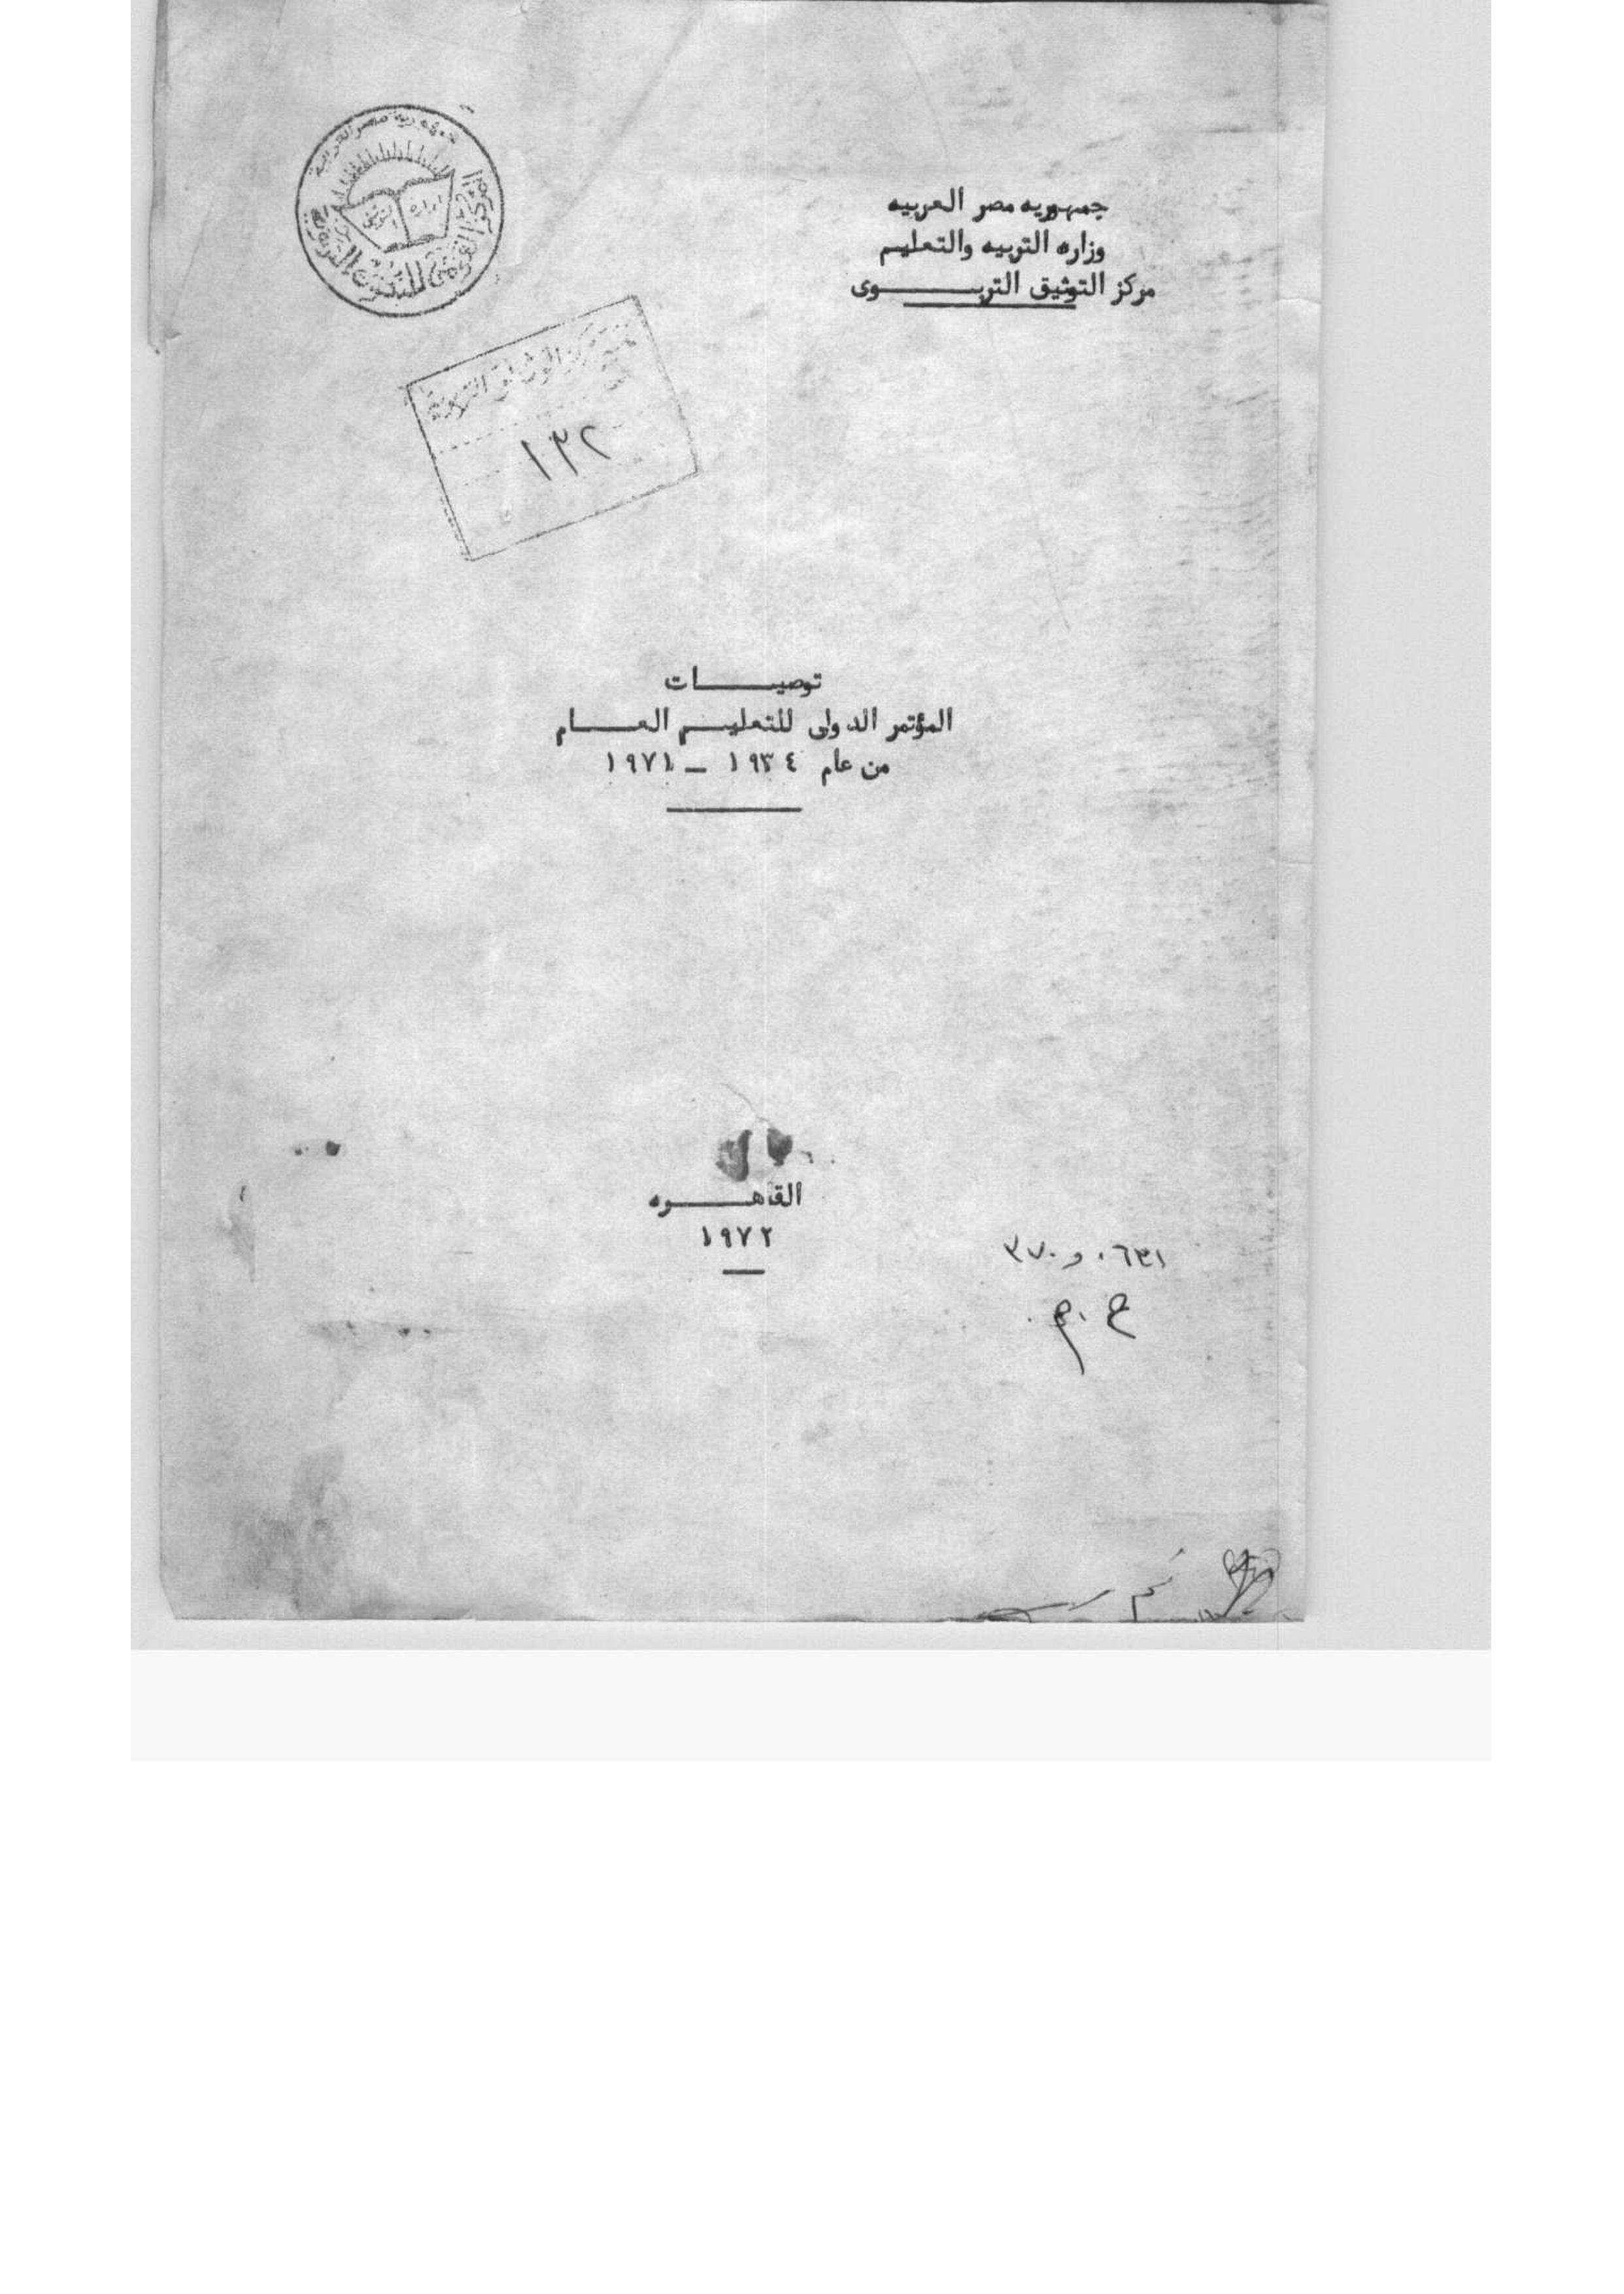 جمهورية مصر العربية
جمهوريه مصر العربيه
وزاره التربيه والتعليم
مركز التوثيق التربـــــوى
١٣٢
توصيـــــات
المؤتمر الدولى للتعليـــم العـــــام
من عام ١٩٣٤ ــ ١٩٧١
القاهـــــره
١٩٧٢
٣٧٠و٠٦٣١
م . ع